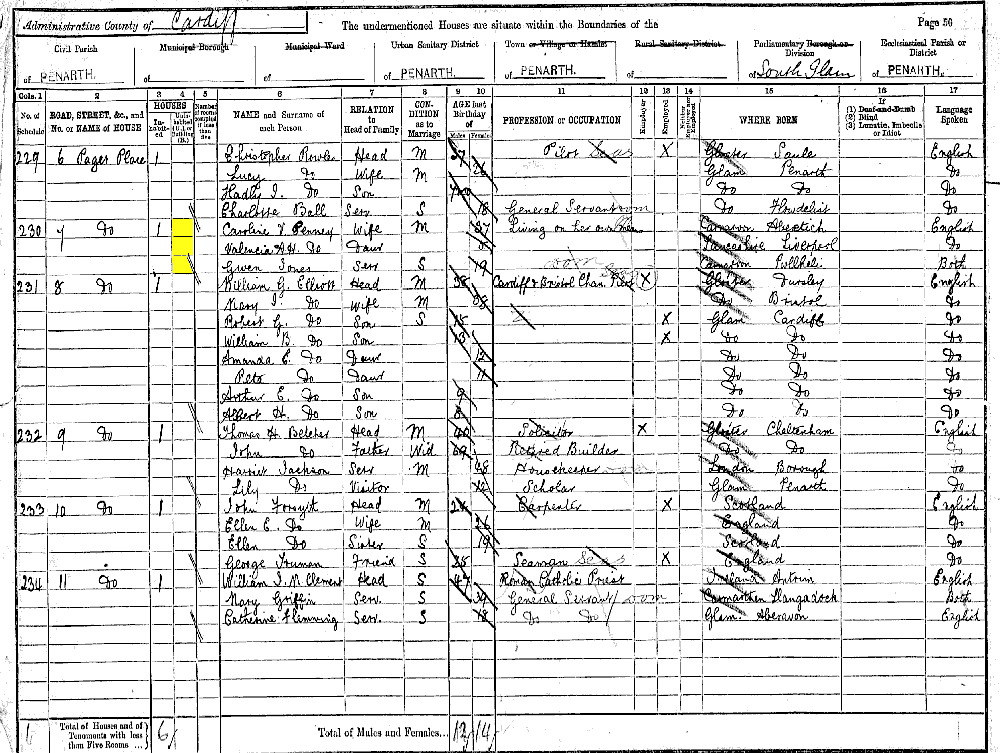 Administrative County of Cardiff The undermentioned Houses are situate within the Boundaries of the Page 56
Civil Parish Municipal Borough Municipal Ward Urban Sanitary District Town or Village or Hamlet Rural Sanitary District Parliamentary Borough or Division Ecclesiastical Parish or District
of PENARTH. of of of PENARTH. of PENARTH. of of South Glam of PENARTH.
Cols. 1 2 3 4 5 6 7 8 9 10 11 12 13 14 15 16 17
No. of Schedule ROAD, STREET, &c., and No. or NAME of HOUSE HOUSES Inhabited Uninhabited (U.), or Building (B.) Number of rooms occupied if less than five NAME and Surname of each Person RELATION to Head of Family CONDITION as to Marriage AGE last Birthday of Males Females PROFESSION or OCCUPATION Employer Employed Neither Employer nor Employed WHERE BORN If (1) Deaf-and-Dumb (2) Blind (3) Lunatic, Imbecile or Idiot Language Spoken
229 6 Place 1 Christopher Rowles Head M 37 Pilot X Gloster English
Lucy Do Wife M Glam Penarth Do
Hadly J. Do Son Do Do Do
Charlotte Ball Serv S 18 General Servant Do Do
230 7 Do 1 Caroline V. Penney Wife M 37 Living on her own Means Carnarvon English
Valencia Do Daur Lancashire Liverpool Do
Gwen Jones Serv S 19 Carnarvon Pwllheli Both
231 8 Do 1 William G. Elliott Head M 38 Cardiff & Bristol Chan. X Gloster Dursley English
Mary J. Do Wife M 38 Do Bristol Do
Robert G. Do Son S 15 X Glam Cardiff Do
William B. Do Son 13 X Do Do Do
Amanda E. Do Daur 12 Do Do Do
Do Daur 11 Do Do Do
Arthur E. Do Son 9 Do Do Do
Albert H. Do Son 8 Do Do Do
232 9 Do 1 Thomas H. Belcher Head M 40 Solicitor X Gloster Cheltenham English
John Do Father Wid 69 Retired Builder Do Do Do
Harriet Jackson Serv M 38 Housekeeper London Borough Do
Lily Do Visitor 12 Scholar Glam Penarth Do
233 10 Do 1 John Forsyth Head M 26 Carpenter X Scotland English
Ellen E. Do Wife M 26 England Do
Ellen Do Sister S 19 Scotland Do
George Truman Friend S 28 Seaman X England Do
234 11 Do 1 William Clement Head S 47 Roman Catholic Priest Ireland Antrim English
Mary Griffin Serv. S 39 General Servant Carmarthen Llangadock Both
Catherine Flemming Serv. S 18 Do Do Glam. Aberavon English
6 Total of Houses and of Tenements with less than Five Rooms ... 6 Total of Males and Females... 13 14